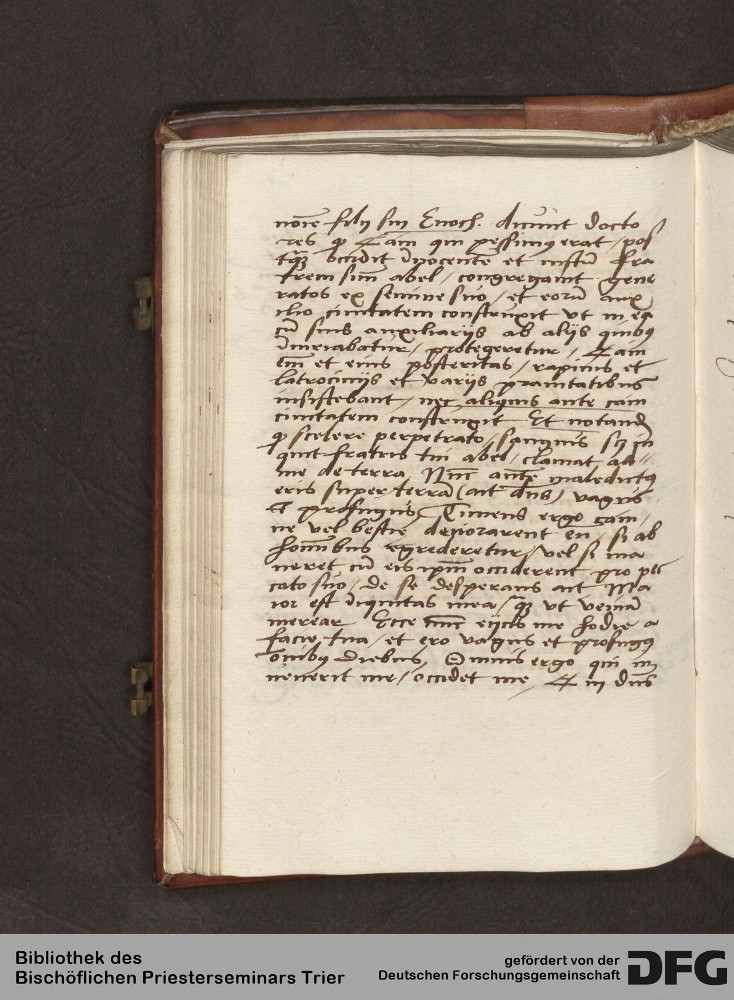 nore filij sui Enoch. dicunt docto
res q̄ Cain qui pessimus erat / pos
tq̄ȝ occidit īnocentē et iustū fra
trem suū abel / congregauit gene
ratos ex semine suo / et eorū aux
ilio ciuitatem construxit ut in ea
cū suis auxiliarijs ab alijs quibus
īiuriabatur / protegeretur / Cain
em̄ et eius posteritas / rapinis et
latrocinijs et varijs prauitatibus
insistebant / nec aliquis ante cain
ciuitatem construxit Et notand
q̄ scelere perpetrato / sanguis in
quit fratris tui abel / clamat ad
me de terra Nūc maledictus
eris super terrā (ait dn̄s) vagus
et profugus / Timens ergo cain /
ne vel bestie deuorarent eū / si ab
hoīnibus egrederetur / vel si ma
neret cū eis ip̄m occiderent pro pec
cato suo / de se desperans ait Ma
ior est īiquitas mea / q̄ȝ ut veniā
merear Ecce eijcis me hodie a
facie tua / et ero vagus et profugus
oībus diebus / Omnis ergo qui in
uenerit me / occidet me / Cui dn̄s
Bibliothek des
Bischöflichen Priesterseminars Trier
gefördert von der
Deutschen Forschungsgemeinschaft
DFG